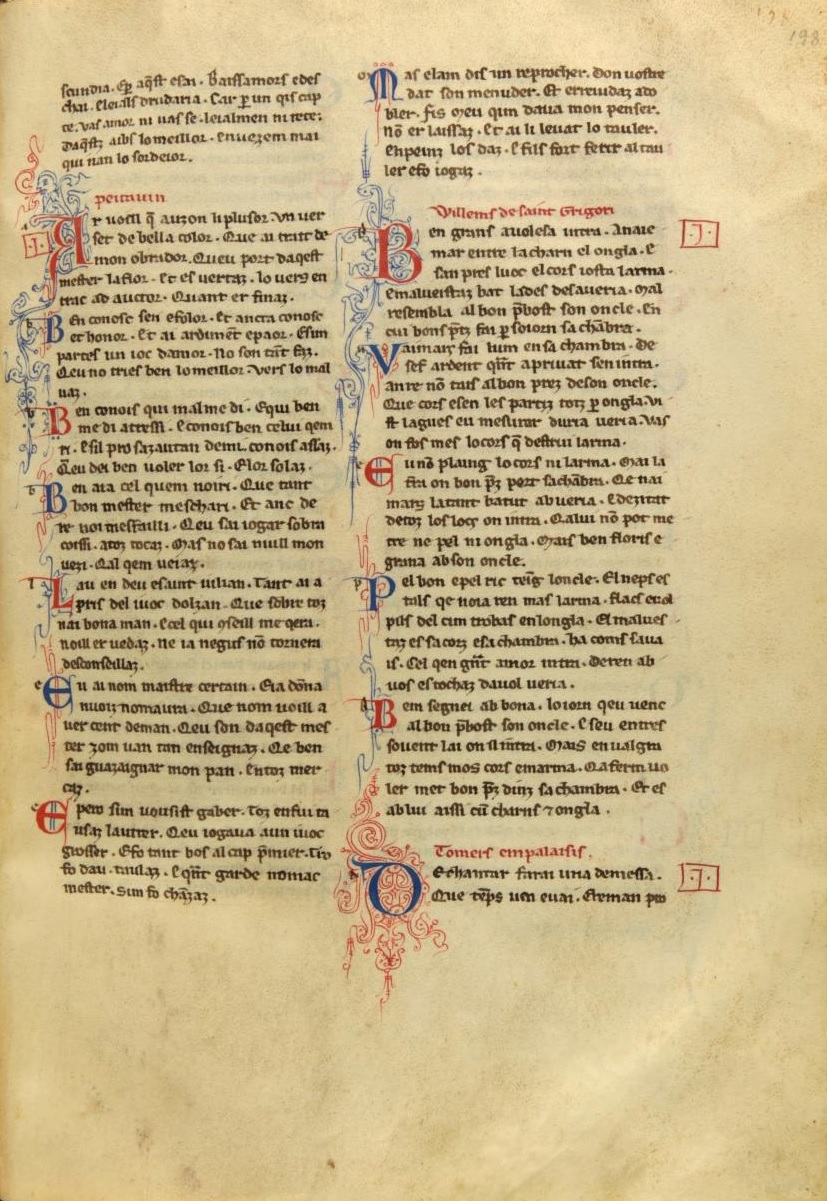 scundia. Eꝑ aq̄st esai. Baissamors edes
chai. Eleials drudaria. Car ꝑ un qis cap
te. Vas amor ni uas se. leialmen ni rete.
Daq̄stz aibs lo meillor. En uezem mai
qui nan lo sordeior.
peitauin
Ar uoill q̄ auzon li plusor. Vn uer
set de bella color. Que ai trait de
mon obrador. Queu port daqest
mester la flor. Et es uertaz. lo uers en
trac ad auctor. Quant er finaz.
Ben conosc sen e folor. Et ancta conosc
et honor. Et ai ardimēt e paor. Esim
partes un ioc damor. No son tāt
Qeu no tries ben lo meillor. Vers lo mal
uaz.
Ben conois qui mal me di. Equi ben
me di atressi. E conois ben celui qem
ri. E sil pro sazautan de mi. conois assaz.
Qeu dei ben uoler lor fi. Elor solaz.
Ben aia cel quem noiri. Que tant
bon mester meschari. Et anc de
re noi mesfailli. Qeu sai iogar sobra
coissi. atoz tocaz. Mas no sai nuill mon
uezi. Qal qem ueiaz.
Lau en deu e saint iulian. Tant ai a
pris del iuoc dolzan. Que sobre toz
nai bona man. E cel qui cſeill me qera.
noill er uedaz. Ne ia negus nō tornera
desconseillaz.
Eu ai nom maistre certain. Eia dōna
nuoiz nomaura. Que nom uoill a
uer cent deman. Qeu son daqest mes
ter zom uan tan enseignaz. Qe ben
sai guazaignar mon pan. En toz mer
caz.
Epero sim uousist gaber. Toz enfui ta
usaz lautrer. Qeu iogaua a un iuoc
grosser. Efo tant bos al cap p̄mier. Tro
fo dau. taulaz. E qn̄t garde nomac
mester. Sim fo chāzaz.
Mas ela m dis un reprocher. Don uostre
dat son menuder. Et erreudaz a do
bler. Fis meu qim daua mon penser.
nō er laissaz. Et ai li leuat lo tauler.
Enpeinz los daz. E fils fort ferir al tau
ler e fo iogaz.
Willems de saint Grigori
Ben grans auolesa intra. A naie
mar entre la charn el ongla. E
san pres luoc el cors iosta larma.
E malueistaz bat lades de sa ueria. Mal
resembla al bon p̄bost son oncle. En
cui bons p̄tz fai ꝑ soiorn sa chābra.
Vaimars fai lum en sa chambra. De
sef ardent qn̄t apriuat sen intra.
an re nō tais al bon prez de son oncle.
Que cors e sen les partiz totz ꝑ ongla. Vi
st lagues eu mesurar dura ueria. Vas
on fos mes lo cors q̄ destrui larma.
Eu nō plaing lo cors ni larma. Mai la
fra on bon p̄z pert sa chābra. Qe nai
marz la tant batut ab ueria. E dezitat
de toz los locs on intra. Qa lui nō pot me
tre ne pel ni ongla. Mais ben floris e
grana ab son oncle.
Pel bon e pel ric teīg loncle. El neps es
tals qe noia ren mas larma. flacs e col
pils del cim tro bas en longla. El malues
taz es sa cors e sa chambra. ha coms saua
is. Cel qen gn̄t amor intra. De ren ab
uos es tochaz dauol ueria.
Bem segnei ab bona. lo iorn qeu uenc
al bon p̄bost son oncle. E seu entres
souent lai on il intra. Mais en ualgra
toz tems mos cors e marma. Qa ferm uo
ler met bon p̄z dinz sa chambra. Et es
ab lui aissi cū charns ⁊ ongla.
Tomers em palaisis.
De chantar farai una demessa.
Que tēps uen e uai. E reman pro